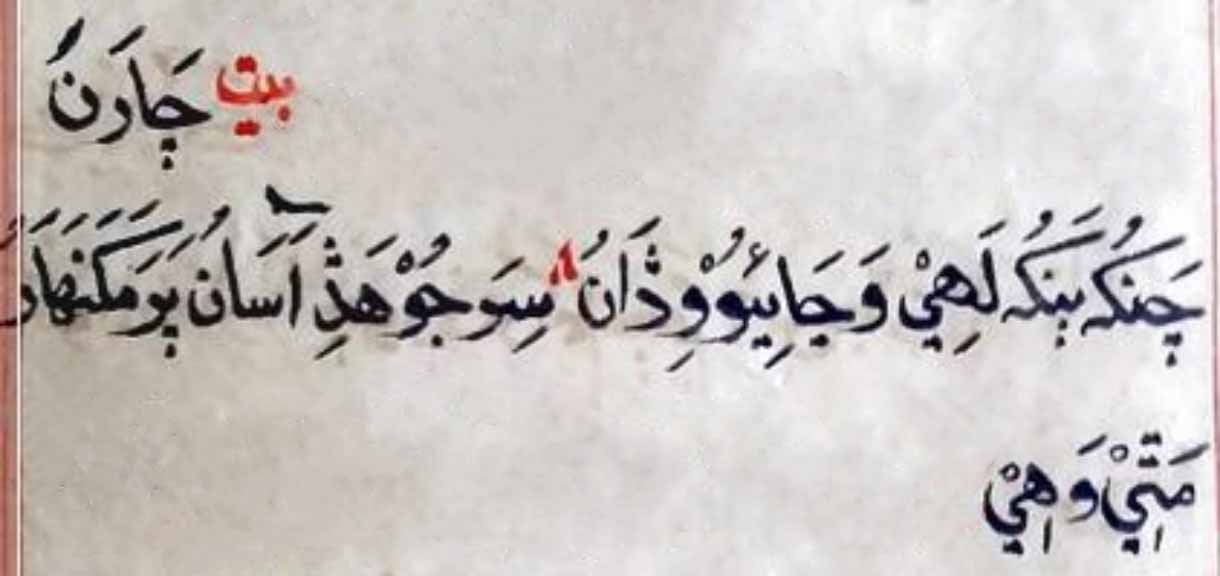 بيت چَارَنُ
چَنگُهہ بَنگُهہ لَهِيْ وَجَايِئُو وِذَانُ سِرَ جُوْ هَڎِ آسَانُ پَرَ مَگَنهَارَ
مَٿِيْ وَهِيْ